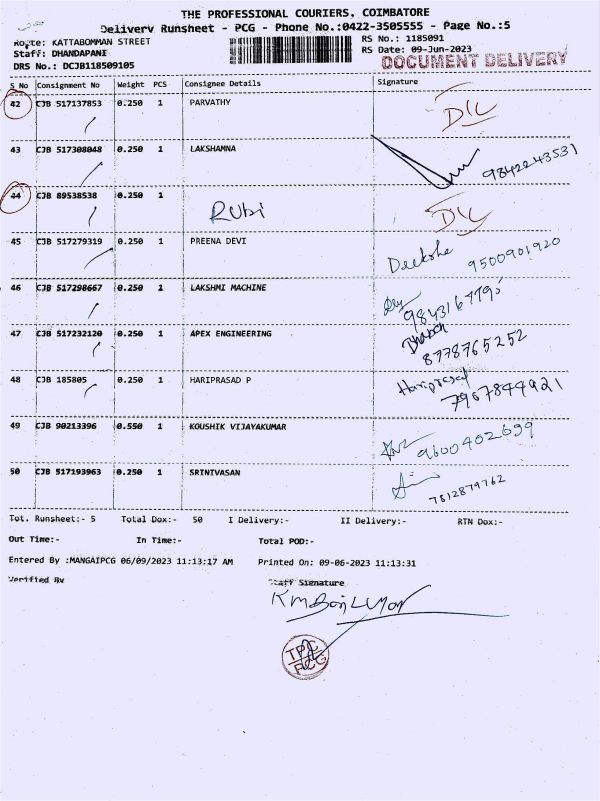 THE PROFESSIONAL COURIERS, COIMBATORE
Delivery Runsheet - PCG - Phone No.:0422-3505555 - Page No.:5
Route: KATTABOMMAN STREET RS No.: 1185091
Staff: DHANDAPANI RS Date: 09-Jun-2023
DRS No.: DCJB118509105 DOCUMENT DELIVERY
S No Consignment No Weight PCS Consignee Details Signature
42 CJB 517137853 0.250 1 PARVATHY D/L
43 CJB 517308048 0.250 1 LAKSHAMNA 9842243531
44 CJB 89538538 0.250 1 RUBI D/L
45 CJB 517279319 0.250 1 PREENA DEVI Deeksha 9500901920
46 CJB 517298667 0.250 1 LAKSHMI MACHINE
47 CJB 517232120 0.250 1 APEX ENGINEERING 8778765252
48 CJB 185805 0.250 1 HARIPRASAD P Hariprasad 7967844921
49 CJB 90213396 0.550 1 KOUSHIK VIJAYAKUMAR 9600402699
50 CJB 517193963 0.250 1 SRINIVASAN 7812879762
Tot. Runsheet:- 5 Total Dox:- 50 I Delivery:- II Delivery:- RTN Dox:-
Out Time:- In Time:- Total POD:-
Entered By :MANGAIPCG 06/09/2023 11:13:17 AM Printed On: 09-06-2023 11:13:31
Verified By Staff Signature
TPC
PCG